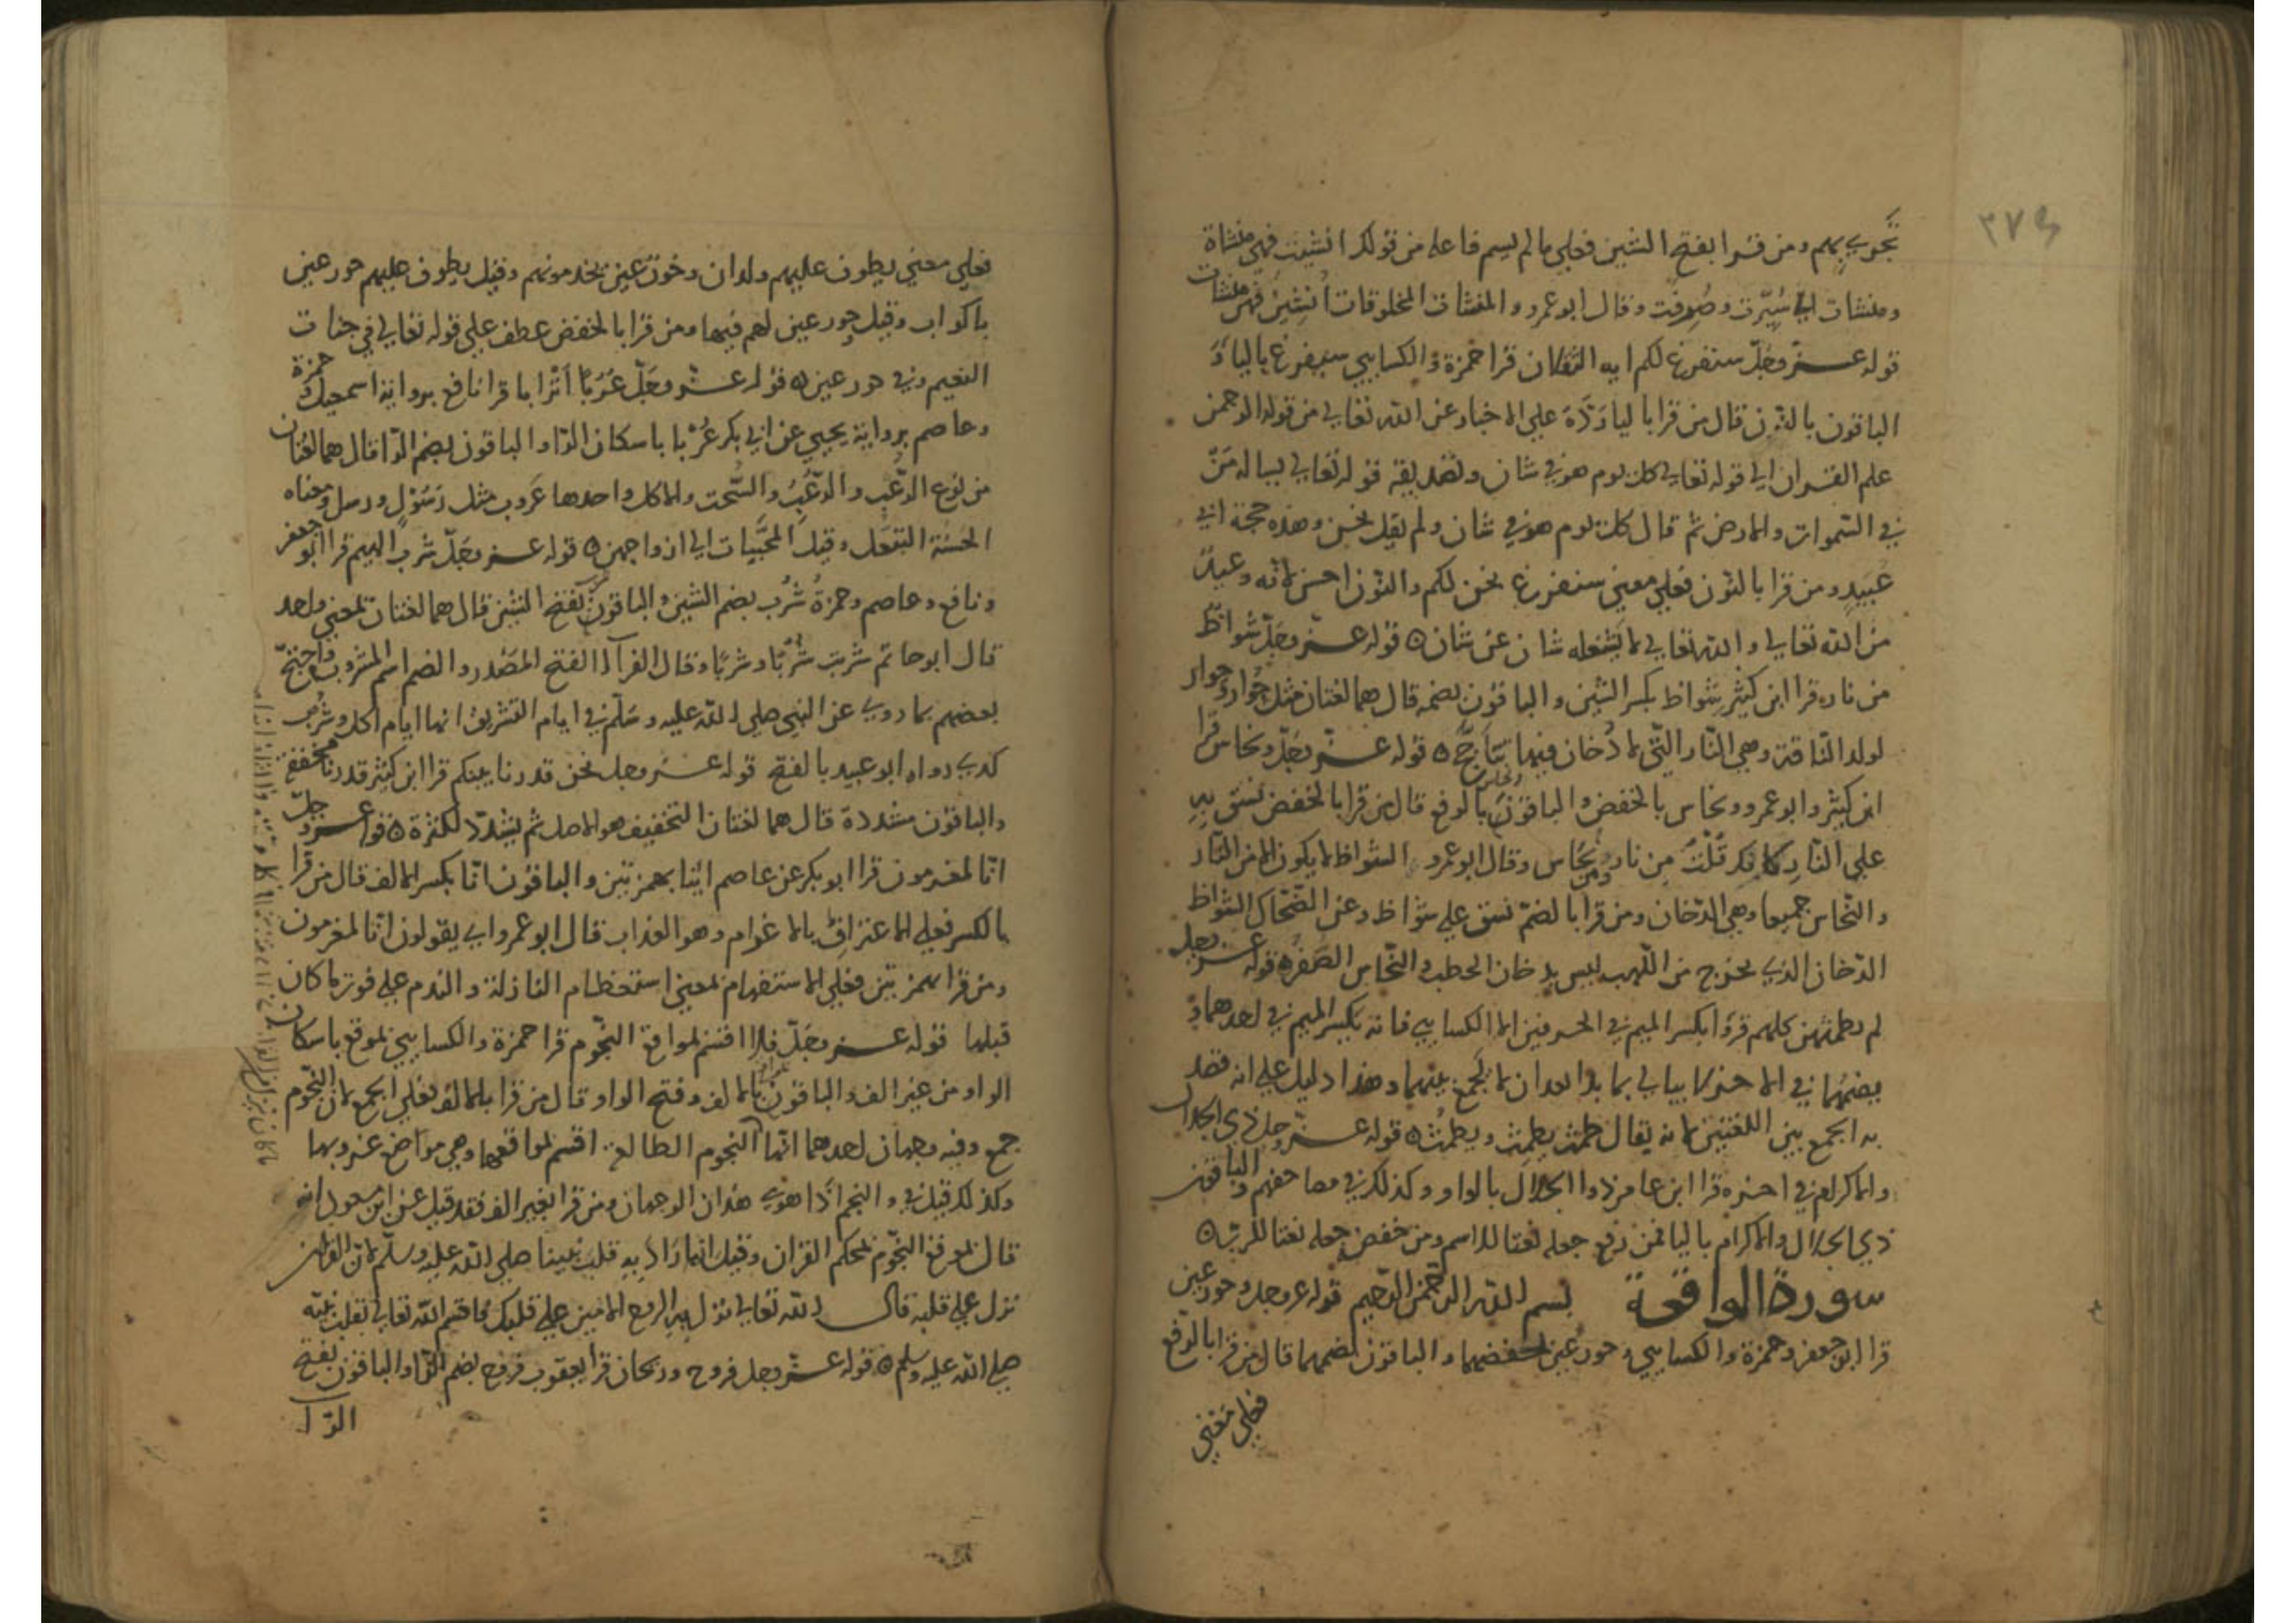 ٣٧٤
تجري بهم ومن قرا بفتح الشين فعلي ما لم يسم فاعله من قولك انشيت فهي منشاة
ومنشات اي سُيّرت وصُرفت وقال ابو عمرو والمنشات المخلوقات أُنشِئن فهن منشات
قوله عز وجلّ سنفرغ لكم ايه الثقلان قرا حمزة والكسايي سيفرغ باليا
الباقون بالنون قال من قرا باليا ردّه علي الاخبار عن الله تعالي من قوله الرحمن
علم القران الي قوله تعالي كل يوم هو في شان وتصديقه قوله تعالي يساله مَنْ
في السّموات والارض ثم قال كل يوم هو في شان ولم يقل نحن وهذه حجة ابي
عُبَيدٍ ومن قرا بالنون فعلي معني سنفرغ نحن لكم والنون احسن لانه وعيدٌ
من الله تعالي والله تعالي لا يشغله شان عن شان ۝ قوله عز وجلّ شواظ
من نار قرا ابن كثير شواظ بكسر الشين والباقون بضمه قال هما لغتان مثل جُوار وجِوار
لولد النّاقة وهي النّار التّي لا دُخان فيها تتأجّج ۝ قوله عز وجلّ ونحاس قرا
ابن كثير وابو عمرو ونحاس بالخفض والباقون ونحاس بالرفع قال من قرا بالخفض نسق به
علي النّار كانه قد قُلْتَ من نار ومن نحاس وقال ابو عمرو الشواظ لا يكون الا من النّار
والنّحاس جميعا وهي الدّخان ومن قرا بالضمّ نسق علي شواظ وعن الضّحاك الشواظ
الدّخان الذي يخرج من اللّهب ليس بدخان الحطب والنّحاس الصّفره قوله عز وجل
لم يطمثهن كلهم قرؤا بكسر الميم في الحرفين الا الكسايي فانه يكسر الميم في احدهما و
يضمّها في الاخر لا يبالي بما بدا بعد ان لا يجمع بينهما وهذا دليل علي انه قصد
به الجمع بين اللغتين لانه يقال طمث يطمِث ويطمُث ۝ قوله عز وجل ذي الجلال
والاكرام في اخره قرا ابن عامر ذوا الجلال بالواو وكذلك في مصاحفهم والباقون
ذي الجلال والاكرام باليا فمن رفع جعله نعتا للاسم ومن خفض جعله نعتا للربّ ۝
سورة الواقعة بسم الله الرحمن الرّحيم قوله عز وجل وحور عين
قرا ابو جعفر وحمزة والكسايي وحورٍ عينٍ بخفضهما والباقون بضمهما قال من قرا بالرفع
فعلي معني
فعلي معني يطوف عليهم ولدان وحورٌ عين يخدمونهم وقيل يطوف عليهم حور عين
باكواب وقيل حور عين لهم فيها ومن قرا بالخفض عطف علي قوله تعالي في جنات
النعيم وفي حور عين ۝ قوله عز وجلّ عُرُبًا أَتْرابا قرا نافع برواية اسمعيل وحمزة
وعاصم برواية يحيي عن ابي بكر عُرْبا باسكان الرّا والباقون بضم الرّا قال هما لغتان
من نوع الرّعْب والرّعُب والسّحت والاكل واحدها عَروب مثل رَسُول ورسل ومعناه
الحَسَنة التبعّل وقيل المحبّبات الي ازواجهن ۝ قوله عز وجلّ شرب الهيم قرا ابو جعفر
ونافع وعاصم وحمزة شُرب بضم الشين والباقون بفتح الشين قال هما لغتان بمعني واحد
قال ابو حاتم شربت شُرْبًا وشَربًا وقال الفرآ الفتح المصْدر والضم اسم المشروب واحتجّ
بعضهم بما روي عن النبي صلي الله عليه وسَلّم في ايام التشريق انها ايام اكل وشرب
كذي رواه ابو عبيد بالفتح قوله عز وجل نحن قدرنا بينكم قرا ابن كثير قدرنا مخففة
والباقون مشددة قال هما لغتان التخفيف هو الاصل ثم يشدّد لكثرة ۝ قوله عز وجلّ
انّا لمغرمون قرا ابو بكر عن عاصم ائنا بهمزتين والباقون انّا بكسر الالف قال من قرا
بالكسر فعلي الاعتراف بالاغرام وهو العذاب قال ابو عمرو اي يقولون انّا لمغرمون
ومن قرا بهمزتين فعلي الاستفهام لمعني استعظام النازلة والندم علي فوت ما كان
قبلها قوله عز وجلّ فلا اقسم بمواقع النّجوم قرا حمزة والكسايي بموقع باسكان
الواو من غير الف والباقون بالالف وفتح الواو قال من قرا بالالف فعلي الجمع لان النّجوم
جمع وفيه وجهان احدهما انّها النجوم الطالعة اقسم بمواقعها وهي مواضع غروبها
وكذلك قيل في والنجم اذا هوي هذان الوجهان ومن قرا بغير الف فقد قيل عن ابن مسعود انه
قال بموقع النّجوم بمحكم القران وقيل انه اراد به قلب نبينا صلي الله عليه وسلّم لان القران
نزل علي قلبه قال الله تعالي نزل به الروح الامين علي قلبك فاقسم الله تعالي بقلب نبيّه
صلي الله عليه وسلم ۝ قوله عز وجل فروح وريحان قرا يعقوب فروح بضم الرّا والباقون بفتح
الرّا